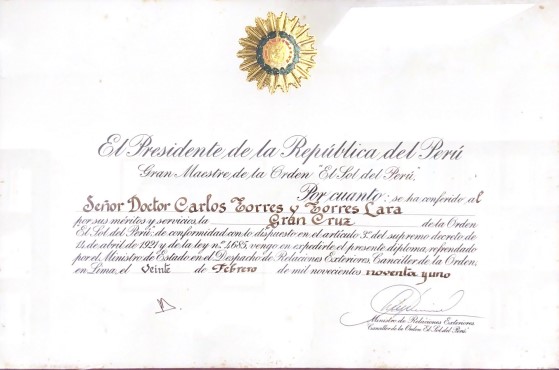 El Presidente de la República del Perú
Gran Maestre de la Orden "El Sol del Perú,"
Por cuanto: se ha conferido al
Señor Doctor Carlos Torres y Torres Lara
por sus méritos y servicios, la Gran Cruz de la Orden
"El Sol del Perú" de conformidad con lo dispuesto en el artículo 3º del supremo decreto de
14 de abril de 1921 y de la ley nº 4685, vengo en expedirle el presente diploma, refrendado
por el Ministro de Estado en el Despacho de Relaciones Exteriores, Canciller de la Orden,
en Lima, el veinte de Febrero de mil novecientos noventa y uno
Ministro de Relaciones Exteriores
Canciller de la Orden "El Sol del Perú"